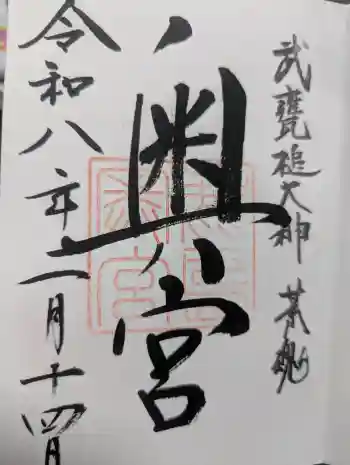 武甕槌大神 荒魂
奥宮
令和八年一月十四日